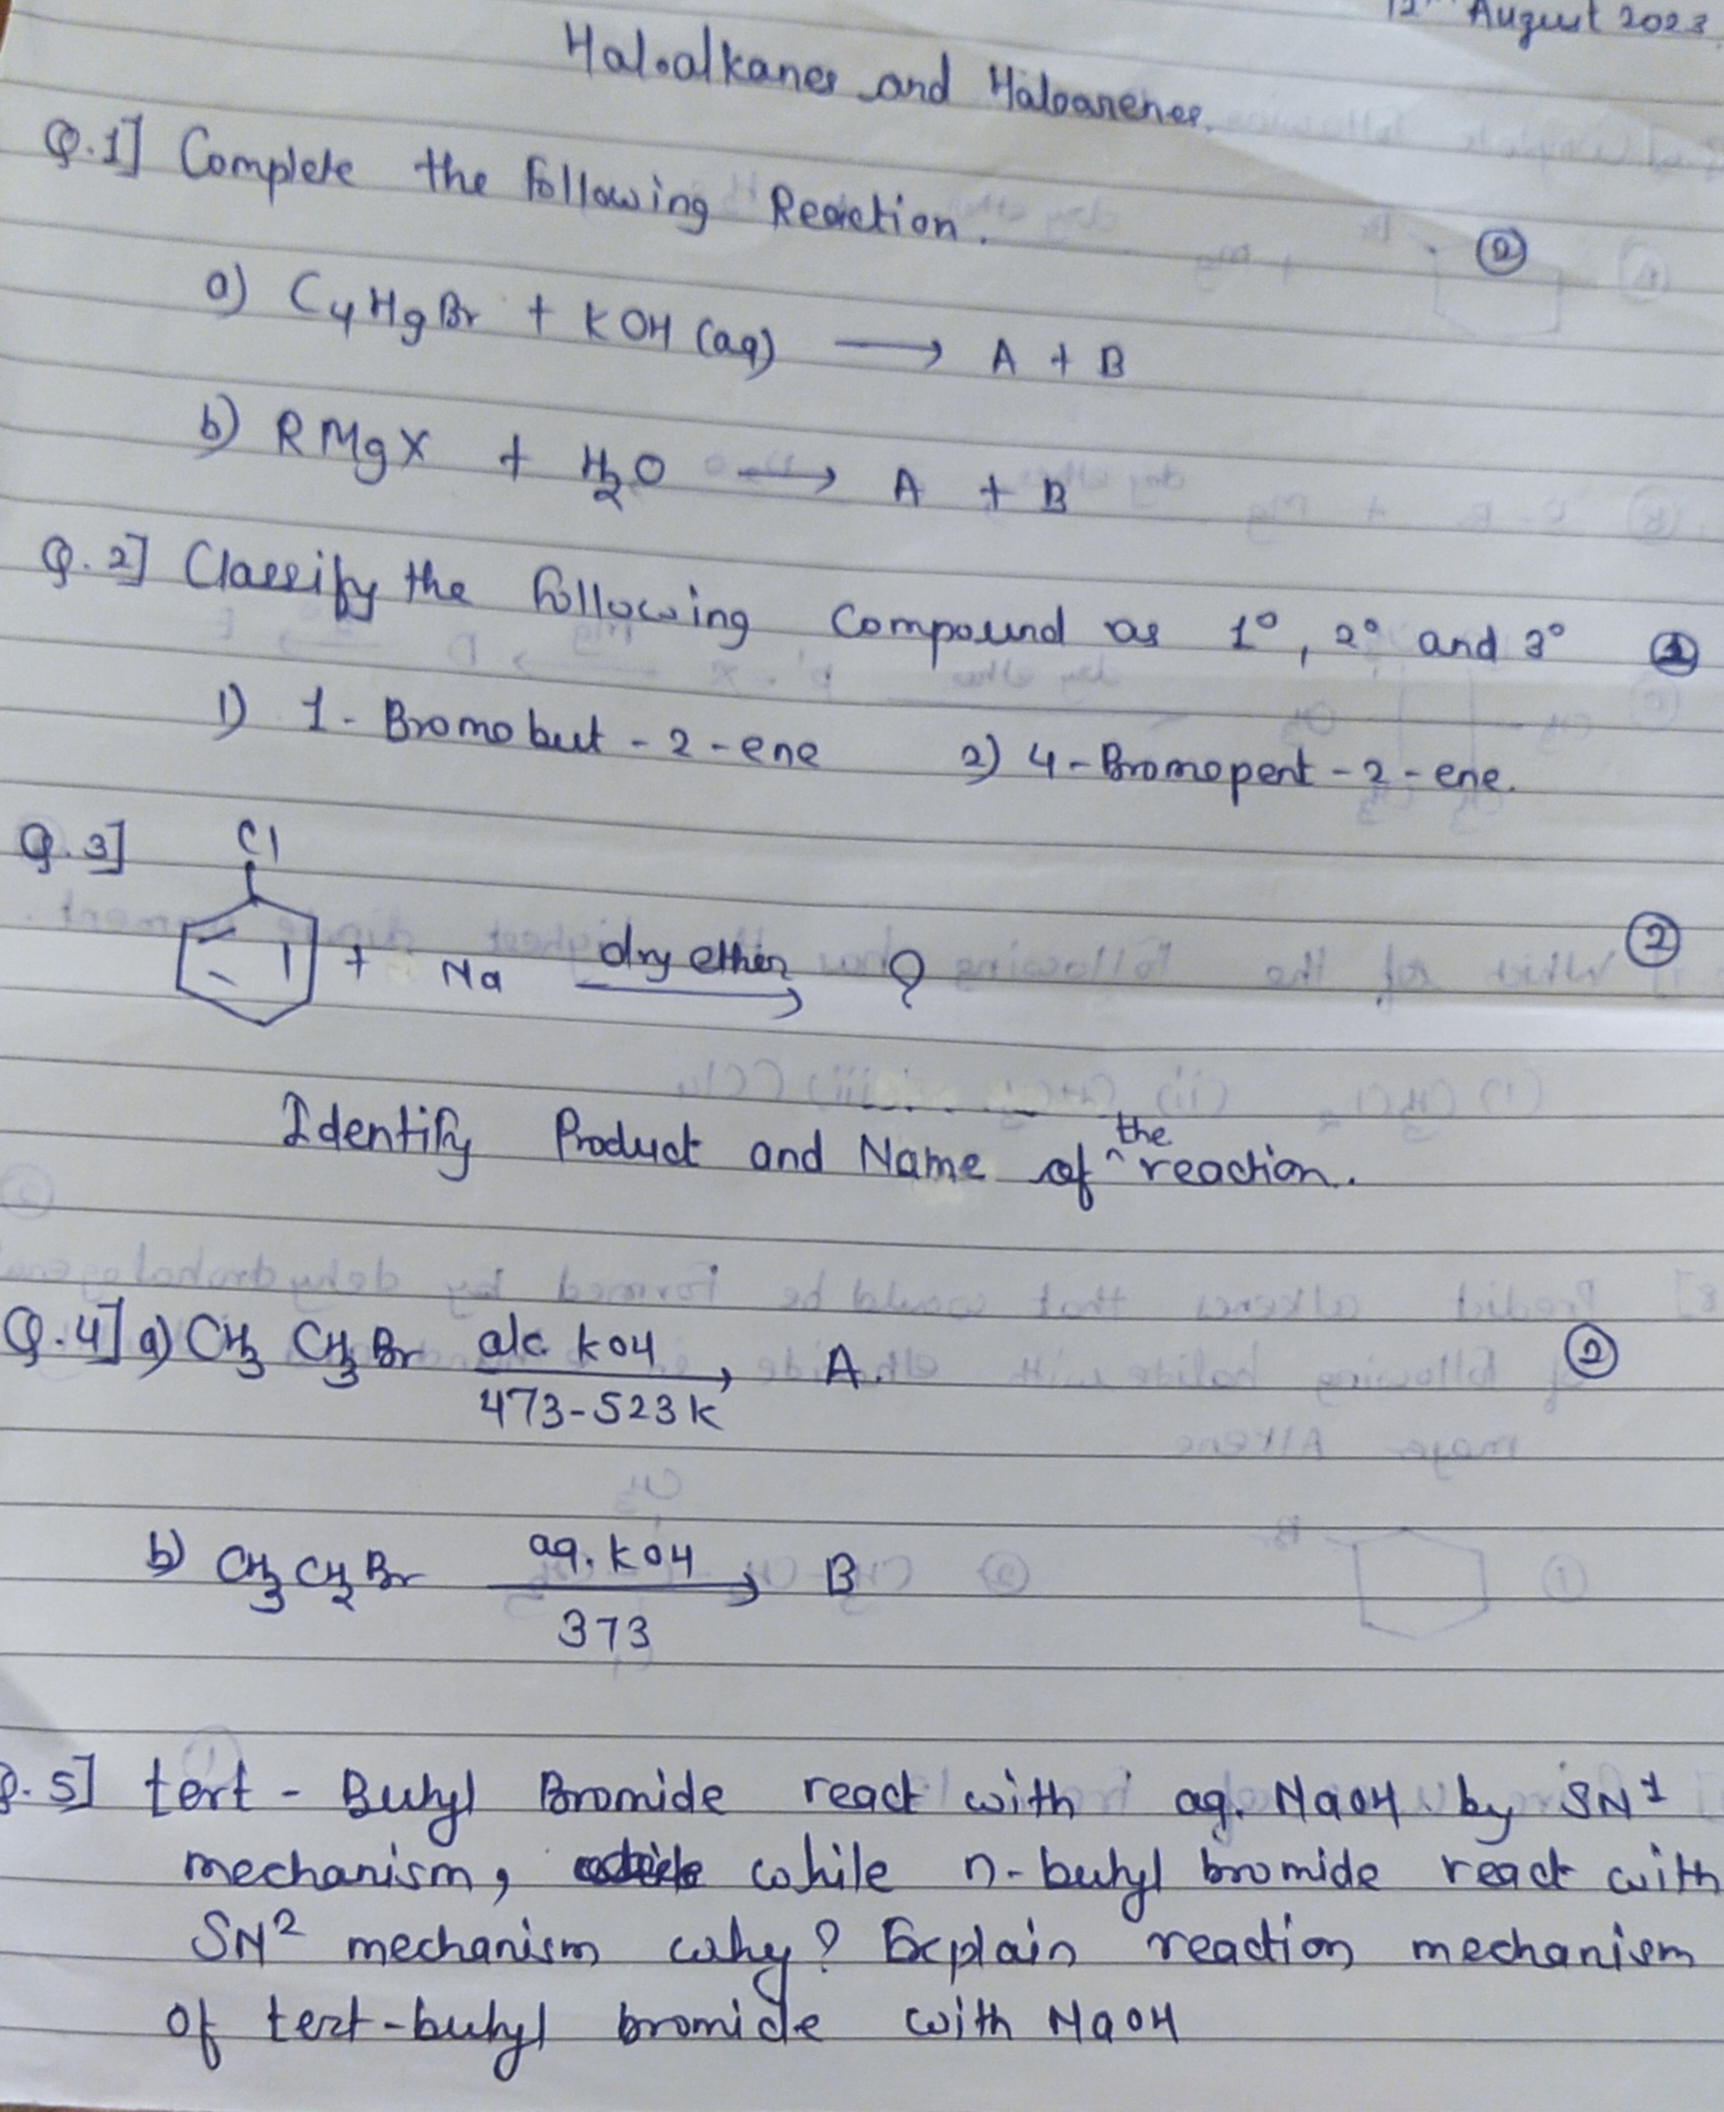 12th August 2023.
Haloalkanes and Haloarenes.
Q.1] Complete the following Reaction. ②
a) C4H9Br + KOH (aq) ⟶ A + B
b) RMgX + H2O ⟶ A + B
Q.2] Classify the following Compound as 1°, 2° and 3° ②
1) 1-Bromobut-2-ene 2) 4-Bromopent-2-ene.
Q.3] Cl
+ Na dry ether ⟶ ? ②
Identify Product and Name of ^the reaction.
Q.4] a) CH3 CH3 Br alc. KOH ⟶ A. ②
473-523K
b) CH3 CH2 Br aq. KOH ⟶ B
373
Q.5] tert - Butyl Bromide react with aq. NaOH by SN1
mechanism, while n-butyl bromide react with
SN2 mechanism why? Explain reaction mechanism
of tert-butyl bromide with NaOH